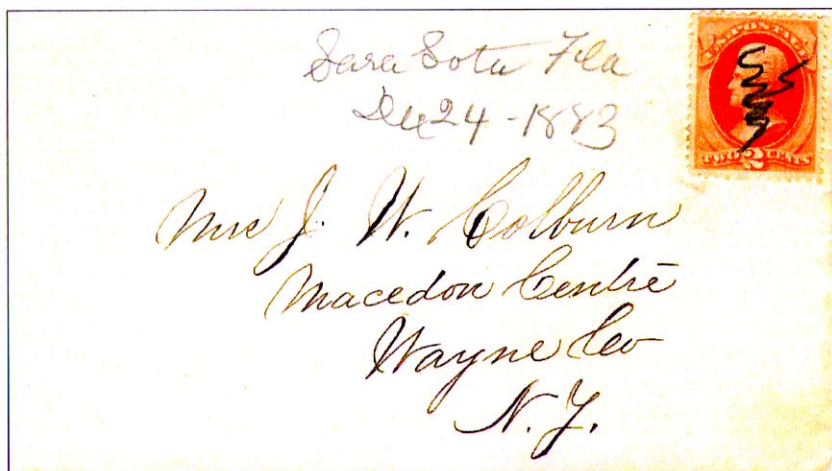 Sara Sota Fla
Dec 24 - 1883
NATIONAL
TWO 2 CENTS
Mrs J. W. Colburn
Macedon Centre
Wayne Co
N. Y.